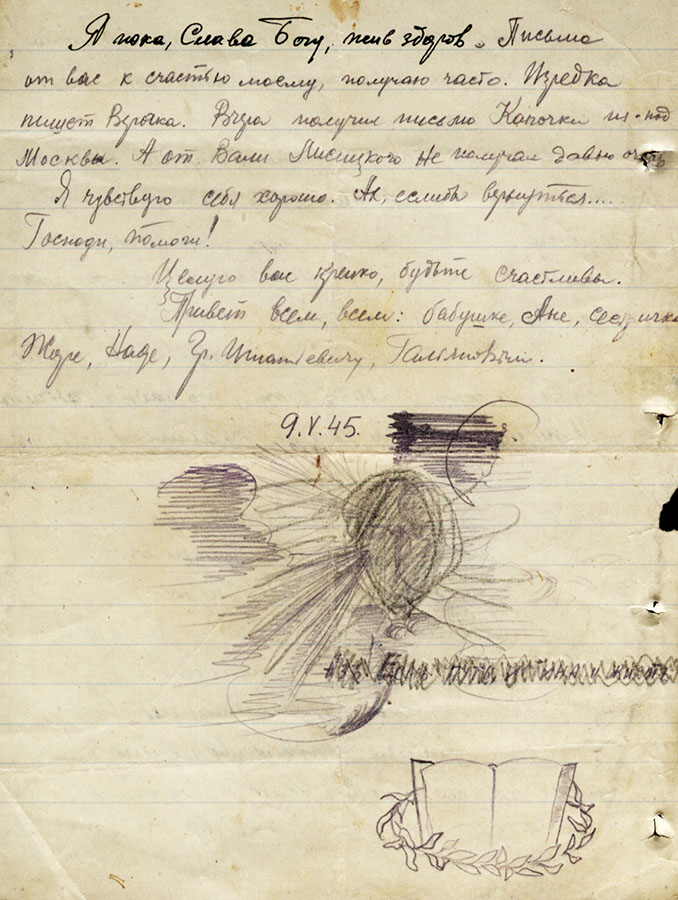 Я пока, Слава Богу, жив здоров. Письма
от вас к счастью моему, получаю часто. Изредка
пишет Верочка. Вчера получил письмо Капочки из-под
Москвы. А от Вали Лисицкого не получал давно очень
Я чувствую себя хорошо. Ах, если бы вернуться....
Господи, помоги!
Целую вас крепко, будьте счастливы.
Привет всем, всем: бабушке, Ане, сестричке
Жоре, Наде, Гр. Игнатиевичу,
9.V.45.